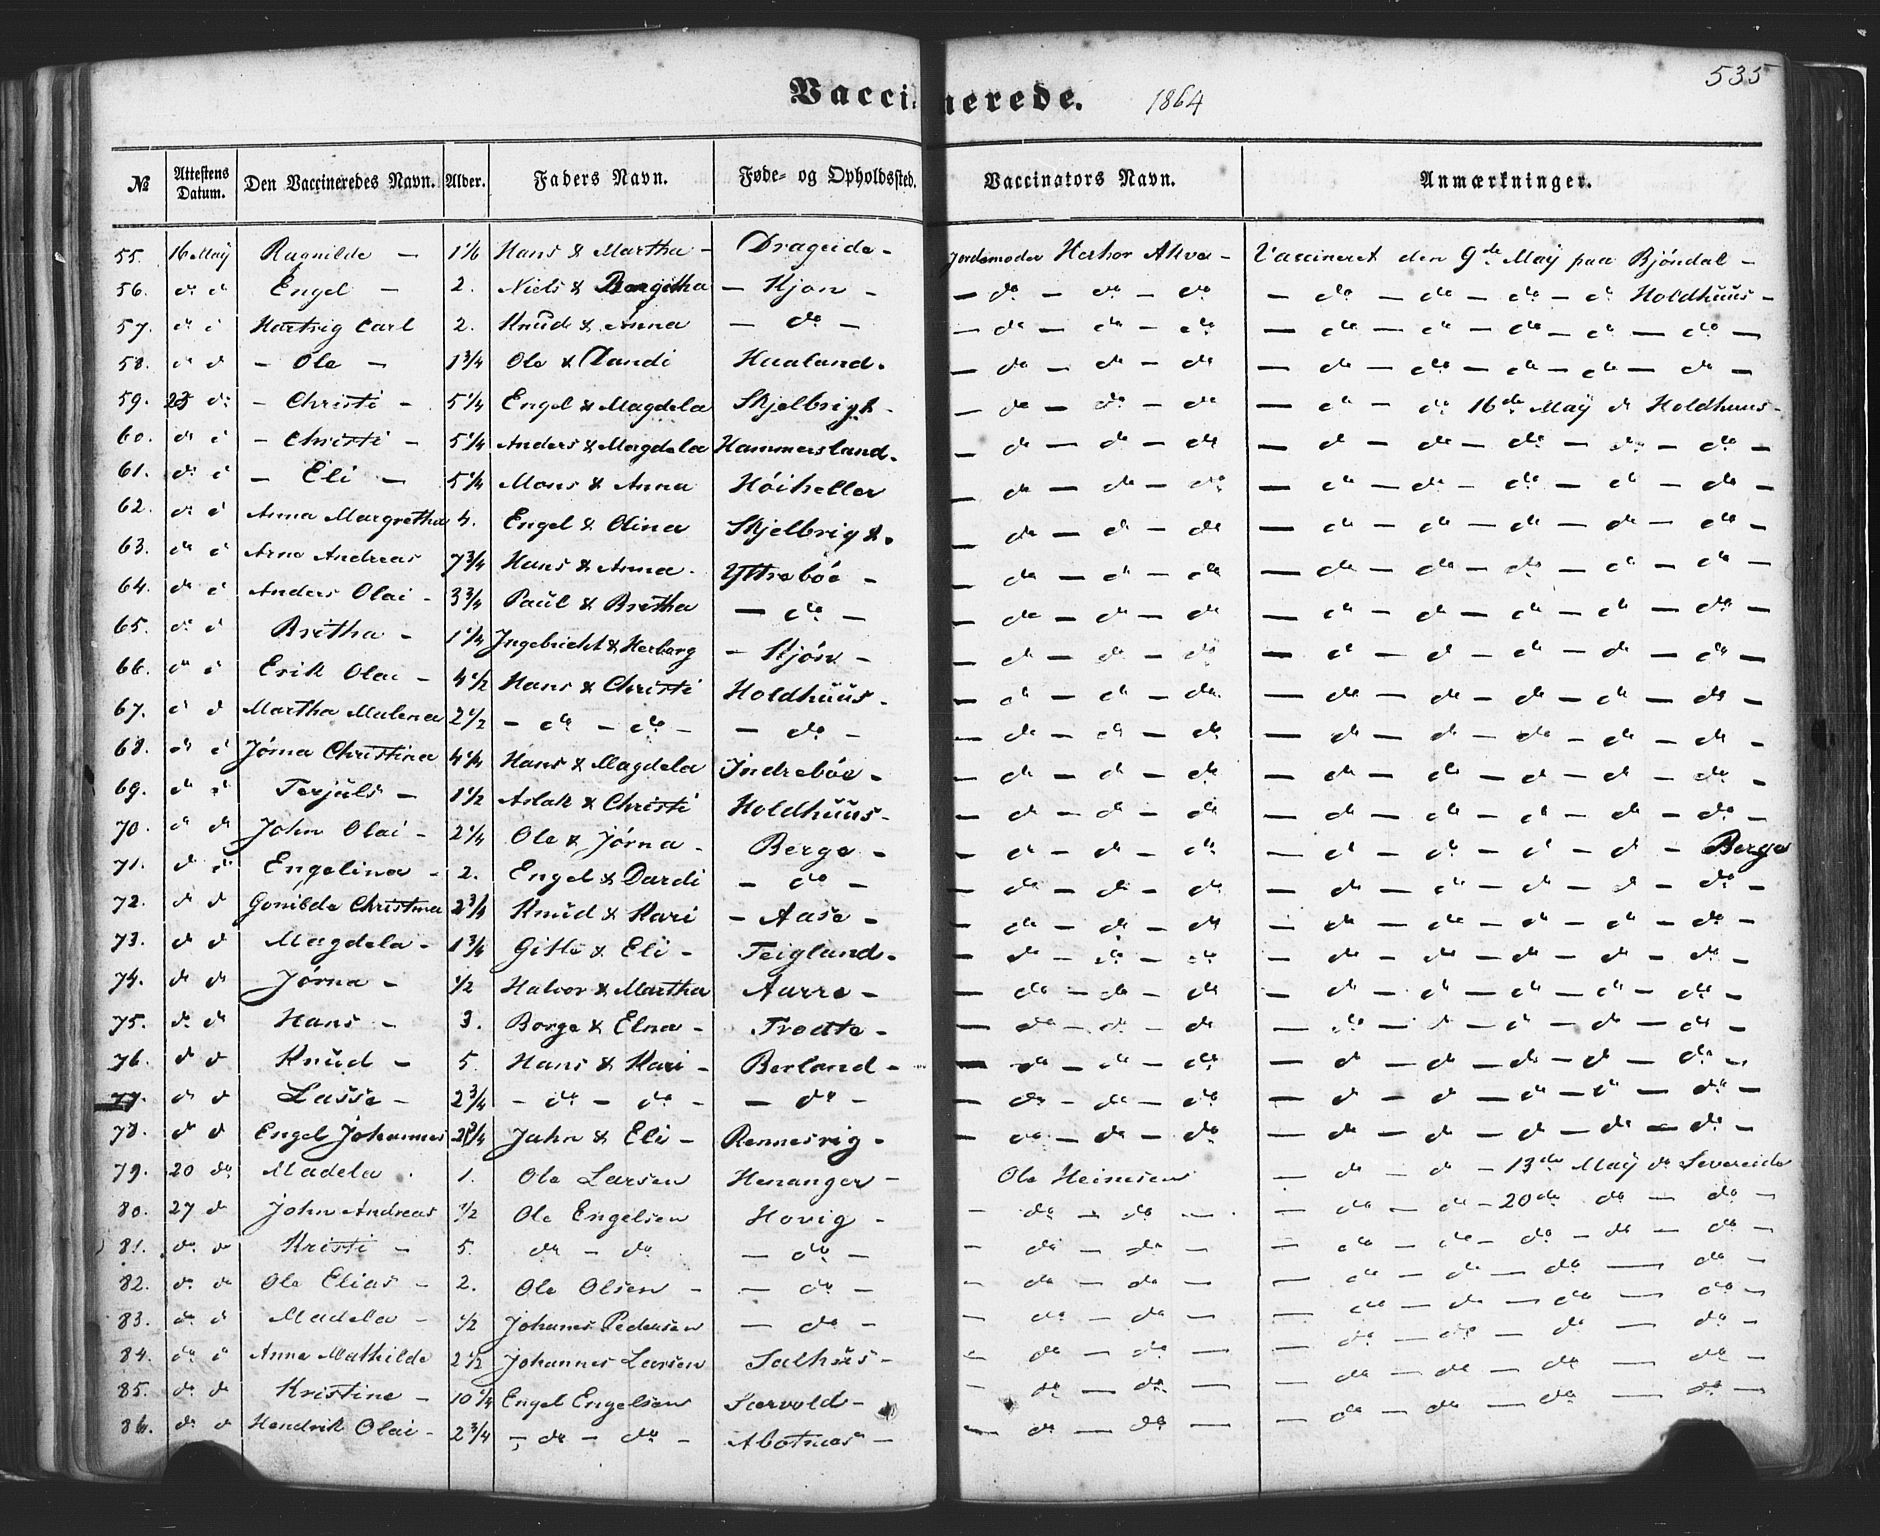 535
Vaccinerede. 1864
№ Attestens Datum. Den Vaccineredes Navn. Alder. Faders Navn. Føde- og Opholdssted. Vaccinators Navn. Anmærkninger.
55. 16 Maÿ Ragnilde — 1 1/6 Hans & Martha — Drageide - Jordemoder Alver - Vaccineret den 9de Maÿ paa Bjöndal -
56. do d Engel — 2. Niels & Bergitha - — do — do — do — do — do — do — do Holdhüüs -
57. do d Hartvig Carl 2. Knüd & Anna — do — — do — do — do — do — do — do — do — do —
58. d d - Ole - 1 3/4 Ole & Dandi Hualand. — do — do — do — do — do — do — do — do —
59. 23 do - Christi - 5 1/4 Engel & Magdela Skjelbrigk. — do — do — do — do — do 16de Maÿ d Holdhuus -
60. do d - Christi - 5 1/4 Anders & Magdela Hammersland. — do — do — do — d — do — do — do — do —
61. do d - Eli - 5 1/4 Mons & Anna Höiheller — do — do — do — do — do — do — d — do —
62. do d Anna Margretha 4. Engel & Olina Skjelbrigk. — do — d — do — do — do — do — do — do —
63. do d Arne Andreas 7 3/4 Hans & Anna - Yttreböe - — do — d — do — do — do — do — do — do —
64. do d Anders Olai - 3 3/4 Paül & Bretha — do — — do — do — do — do — do — do — do — do —
65. do d Bretha - 1 1/4 Ingebricht & Herborg - — do — do — do — d — d — do — do — do —
66. do d Erik Olai - 4 1/2 Hans & Christi Holdhüüs - — d — d — do — do — do — d — d — do —
67. d d Martha Malena 2 1/2 - do - do - — do — — do — d — do — do — d — do — do — do —
68. do d Jörna Christina 4 1/4 Hans & Magdela Indreböe - — d — d — do — do — do — d — d — do —
69. do do Terjüls - 1 1/2 Aslak & Christi Holdhüüs - — do — do — d — do — do — d — do — do —
70. d do John Olai - 2 1/4 Ole & Jörna - Berge - — d — d — do — d — do — d — d — Berge
71. d do Engelina - 2. Engel & Dardi — do — — do — do — do — do — d — d — d — do —
72. do d Gonilde Christina 2 3/4 Knüd & Kari - Aase - — do — do — do — do — do — do — do — do —
73. do d Magdela - 1 3/4 Gitle & Eli - Teigland. — do — do — do — do — do — do — do — do —
74. do do Jörna - 1/2 Halvor & Martha Aarre - — do — do — do — do — do — d — do — do —
75. do do Hans - 3. Borge & Elna - Trodte - — do — do — do — do — d — d — do — do —
76. d d Knüd - 5. Hans & Kari - Berland - — do — do — do — d — do — do — do — do —
77. do d Lasse - 2 3/4 - do - do - — do — — do — do — do — d — do — do — d — do —
78. do d Engel Johannes 2 3/4 John & Eli - Rennesvig - — do — do — do — d — do — d — do — do —
79. 20 do Madela 1. Ole Larsen Henanger - Ole Heimsen — do — do — 13de Maÿ do Severeide
80. 27 do John Andreas 1/2 Ole Engelsen Hovig - — do — do — — do — do — 20de do — do —
81. do do Kristi - 5. do — do — do — — do — do — — do — do — do — do — do —
82. do do Ole Elias - 2. Ole Olsen - — do — — do — do — — do — do — do — do —
83. do d Madela - 1/2 Johannes Pedersen — do — — do — do — — do — do — do — do —
84. do d Anna Mathilde 2 1/2 Johannes Larsen Salhüs - — do — do — — do — do — do — do —
85. do do Kristine - 10 1/4 Engel Engelsen Sævold - — do — do — — do — do — do — do —
86. do d Hendrik Olai - 2 3/4 - do - do - — do — do — — do — do — do — do —